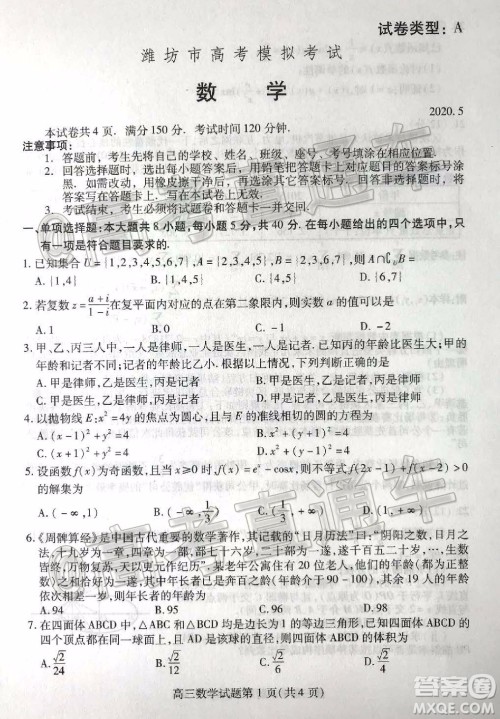 试卷类型：A
潍坊市高考模拟考试
数 学
2020.5
本试卷共4页. 满分150分. 考试时间120分钟.
注意事项：
1. 答题前，考生先将自己的学校、姓名、班级、座号、考号填涂在相应位置.
2. 回答选择题时，选出每小题答案后，用铅笔把答题卡上对应题目的答案标号涂黑. 如需改动，用橡皮擦干净后，再选涂其它答案标号. 回答非选择题时，将答案写在答题卡上. 写在本试卷上无效.
3. 考试结束，考生必须将试题卷和答题卡一并交回.
一、单项选择题：本大题共8小题，每小题5分，共40分. 在每小题给出的四个选项中，只
有一项是符合题目要求的.
1. 已知集合 U={1,2,3,4,5,6,7}, A={2,3,4,5}, B={2,3,6,7}, 则 A∩∁UB=
A. {1,4} B. {1,4,5} C. {4,5} D. {6,7}
2. 若复数 z=(a+i)/(1-i) 在复平面内对应的点在第二象限内，则实数 a 的值可以是
A. 1 B. 0 C. -1 D. -2
3. 甲、乙、丙三人中，一人是律师，一人是医生，一人是记者. 已知丙的年龄比医生大；甲
的年龄和记者不同；记者的年龄比乙小. 根据以上情况，下列判断正确的是
A. 甲是律师，乙是医生，丙是记者 B. 甲是医生，乙是记者，丙是律师
C. 甲是医生，乙是律师，丙是记者 D. 甲是记者，乙是医生，丙是律师
4. 以抛物线 E: x²=4y 的焦点为圆心，且与 E 的准线相切的圆的方程为
A. (x-1)²+y²=4 B. x²+(y-1)²=4
C. (x+1)²+y²=4 D. x²+(y+1)²=4
5. 设函数 f(x) 为奇函数，且当 x≥0 时，f(x)=eˣ-cosx, 则不等式 f(2x-1)+f(x-2)>0
的解集为
A. (-∞,1) B. (-∞,1/3) C. (1/3,+∞) D. (1,+∞)
6.《周髀算经》是中国古代重要的数学著作，其记载的“日月历法”曰：“阴阳之数，日月之
法，十九岁为一章，四章为一部，部七十六岁，二十部为一遂，遂千百五二十岁，…. 生数
皆终，万物复苏，天以更元作纪历”. 某老年公寓住有20位老人，他们的年龄（都为正整
数）之和恰好为一遂，其中年长者已是奔百之龄（年龄介于90-100），其余19人的年龄
依次相差一岁，则年长者的年龄为
A. 94 B. 95 C. 96 D. 98
7. 在四面体 ABCD 中，△ABC 和△BCD 均是边长为1的等边三角形，已知四面体 ABCD 的
四个顶点都在同一球面上，且 AD 是该球的直径，则四面体 ABCD 的体积为
A. √2/24 B. √2/12 C. √2/6 D. √2/4
高三数学试题第1页（共4页）